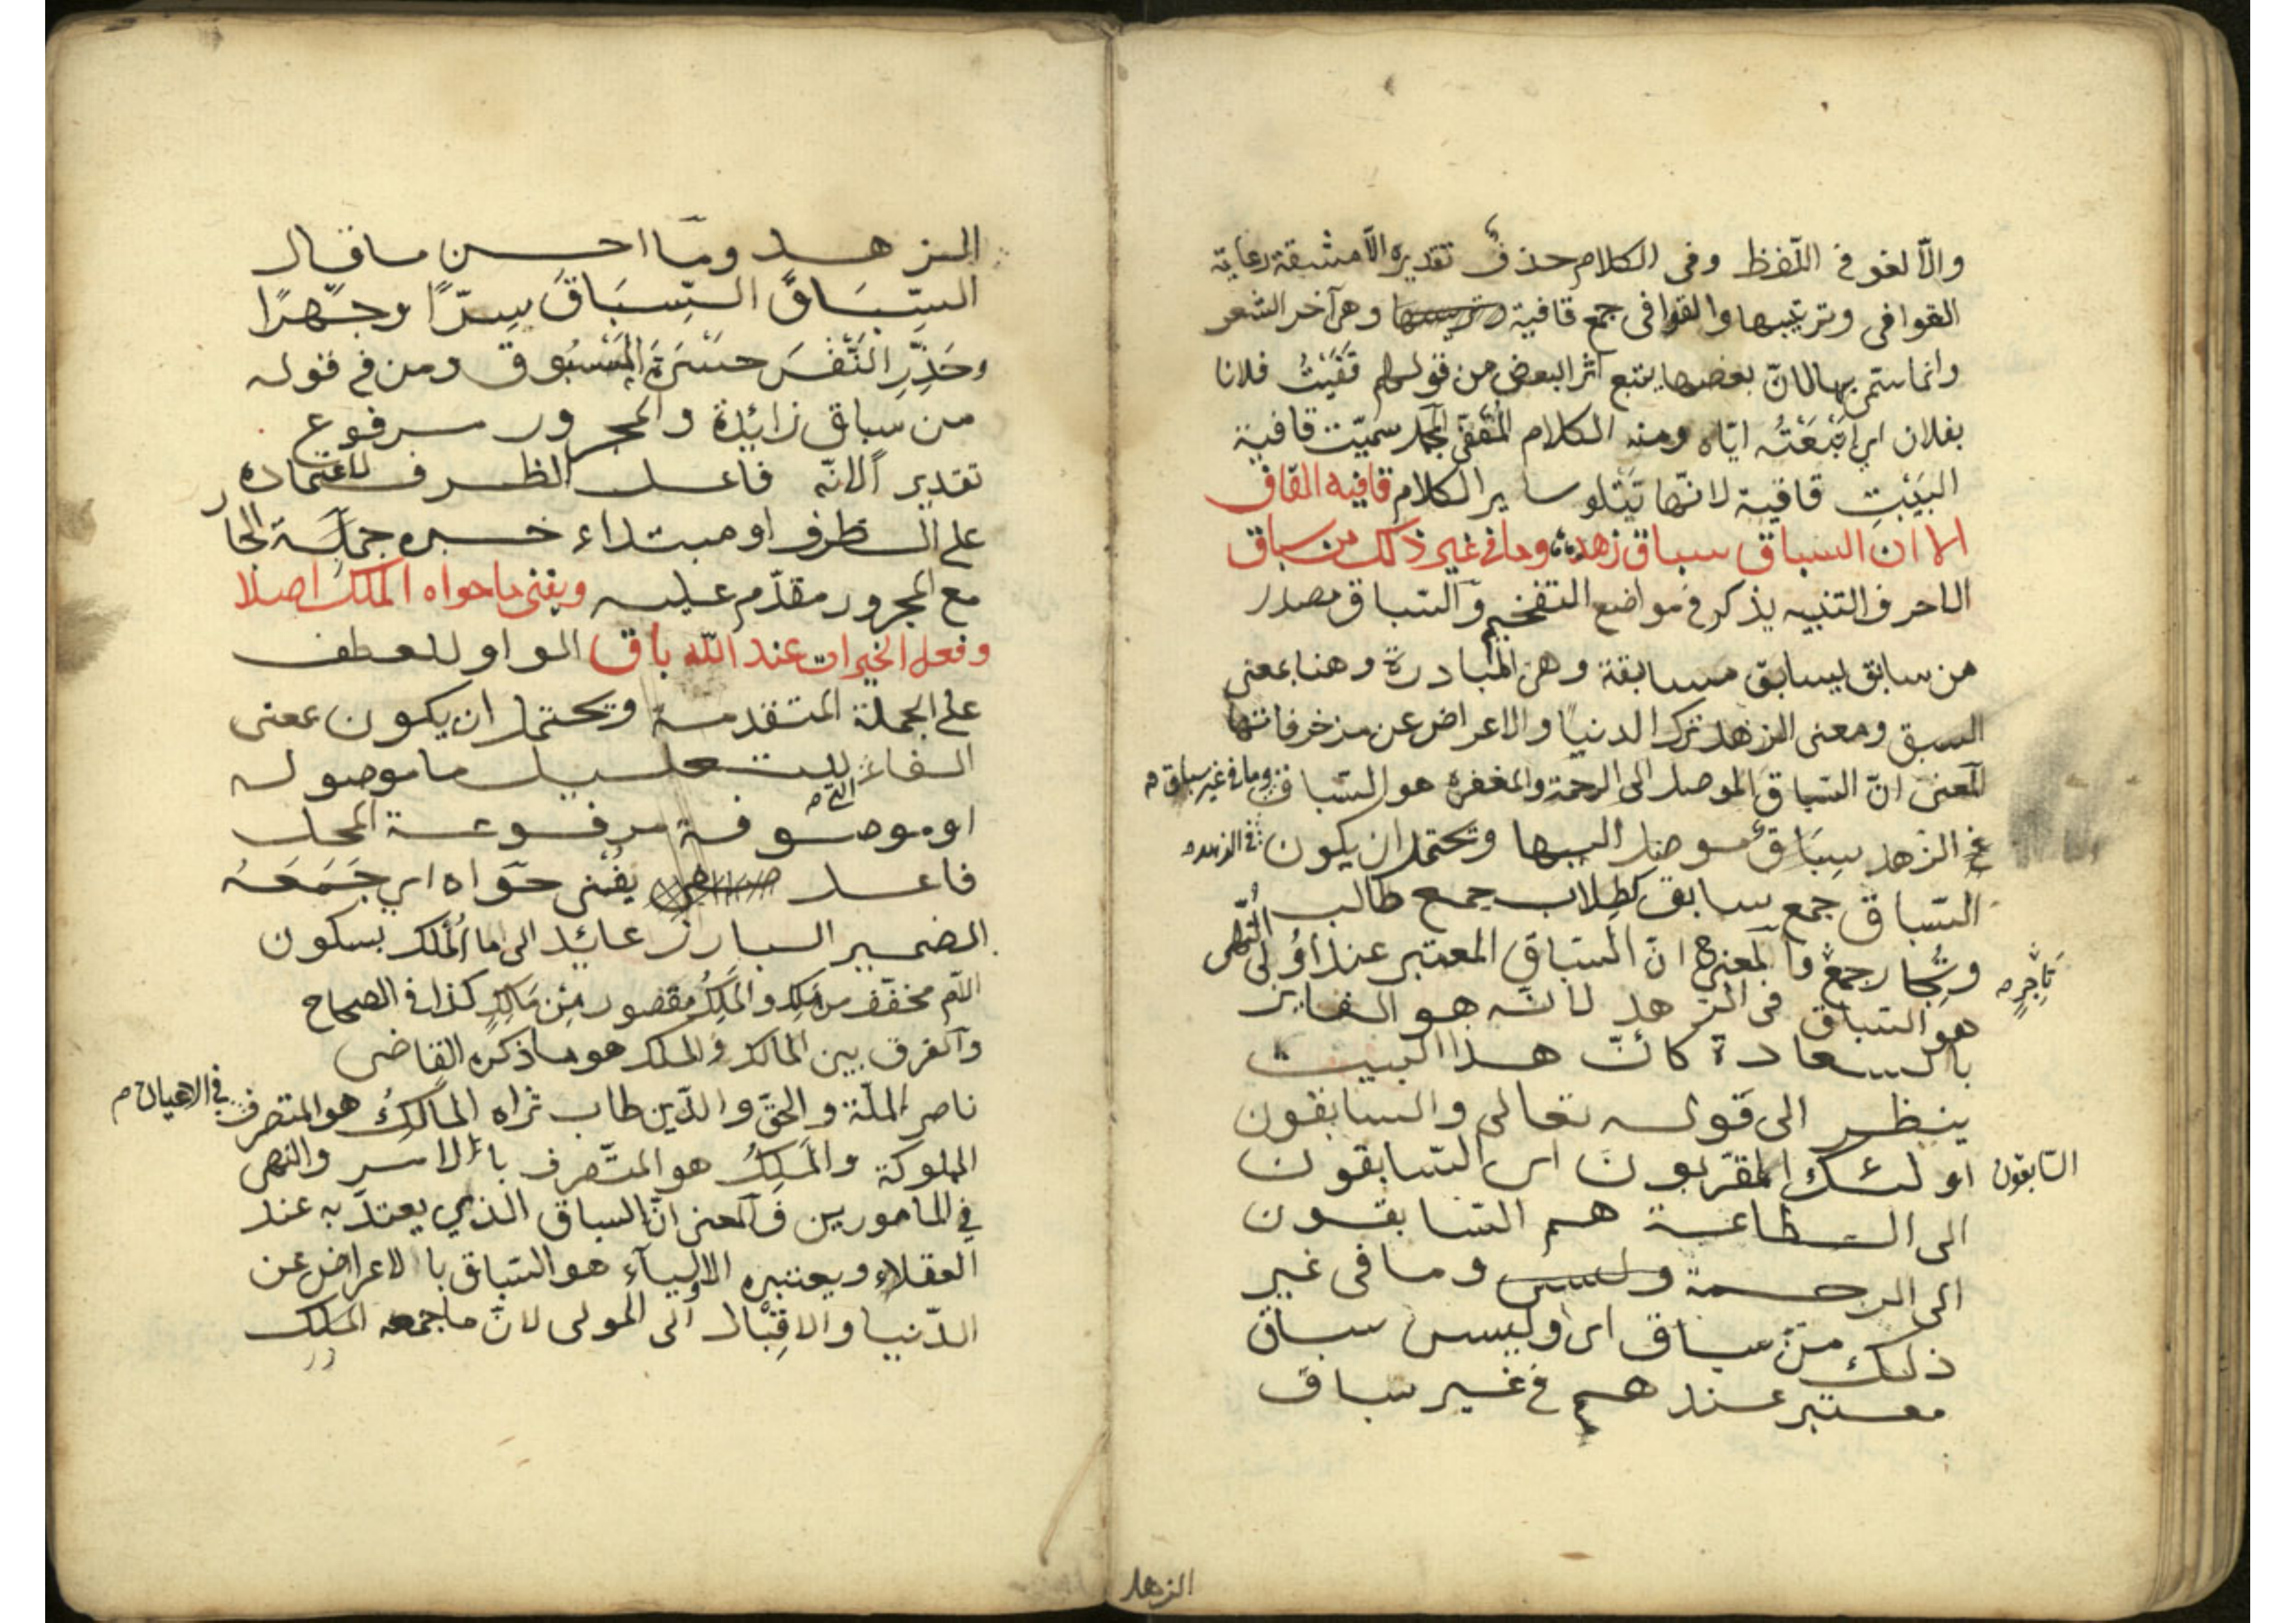 والّا لغو في اللّفظ وفى الكلام حذف تقديره الّا مشبقة رعاية
القوافى وترتيبها والقوافى جمع قافية وهى آخر الشعر
وانما ستمى بها لانّ بعضها يتبع اثر البعض من قولهم قَفَيْتُ فلانا
بفلان اى اتْبَعْتُه ايّاه ومنه الكلام المُقَفّى سميّت قافية
البَيْتِ قافية لانّها تَتْلو ساير الكلام قافيه القاف
الا ان السباق سباق زهد وما فى غير ذلك من سباق
الا حرف التنبيه يذكر في مواضع التفخيم والسّباق مصدر
من سابق يسابق مسابقة وهى المُبادرة وهنا بمعنى
السبق ومعنى الزهد ترك الدنيا والاعراض عن مزخرفاتها
المعنى انّ السّباق الموصل الى الرحمة والمغفرة هو السّباق
وما فى غير سباق م
في الزّهد سِبَاقٌ موصل اليها ويحتمل ان يكون
فى الزهد م
السّباق جمع سابق كطِلاب جمع طالب
وتِجُار جمع فالمعنى ح انّ السّبَاق المعتبر عند اُولى النُّهى
تَاجِرٍ م
هو السّباق فى الزهد لانّه هو الفايز
بالسعادة كانّ هذا البيت
ينظر الى قوله تعالى والسابقون
السّابقون
اولئك المقرّبون اى السّابقون
الى الطاعة هم السّابقون
الى الرحمة وما فى غير
ذلك من سباق اى وليس سباق
معتبر عندهم في غير سباق
الزهد
الزهد وما احسن ما قال
السِّبَاقَ السِّبَاقَ سِرّاً وجَهْراً
وحَذِّرِ النَّفْسَ حَسْرَةَ المَسْبُوق ومن في قوله
من سباق زائدة والمجرور مرفوع
تقديراً لانّه فاعل الظرف لاعتماده
على الظرف او مبتداء خبره جملة الجار
مع المجرور مقدّم عليه ويفنى ما حواه الملك اصلا
وفعل الخيرات عند الله باق الواو للعطف
على الجملة المتقدمة ويحتمل ان يكون بمعنى
الفاء للتعليل ما موصوله
او موصوفة مرفوعة المحل
فاعل يفْنى حَوَاه اى جَمَعَهُ
الضمير البارز عائد الى ما المُلْك بسكون
اللّام مخفّف من مَلِك والمَلِكُ مقصور مِن مَالِكٍ كذا فى الصحاح
والفرق بين المالك والملك هو ما ذكره القاضى
ناصر الملّة والحقّ والدّين طاب ثراه المالِكُ هو المتصرف
فى الاعيان م
المملوكة والمَلِكُ هو المتّصرف بالامر والنهى
في المامورين فالمعنى انّ السباق الذي يعتدّ به عند
العقلاء ويعتبره الاولياء هو السّباق بالاعراض عن
الدّنيا والاقِبْال الى المولى لانّ ما جمعه الملك